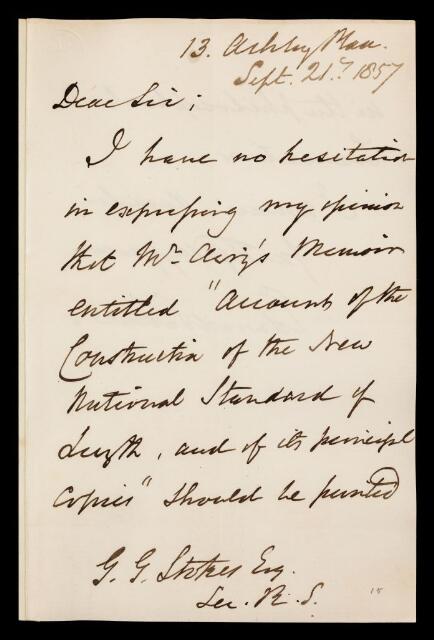 13. Ashley Place.
Sept. 21st 1857
Dear Sir;
I have no hesitation
in expressing my opinion
that Mr Airy's Memoir
entitled "Account of the
Construction of the New
National Standard of
Length, and of its principal
Copies" should be printed
G. G. Stokes Esq.
Sec. R. S.